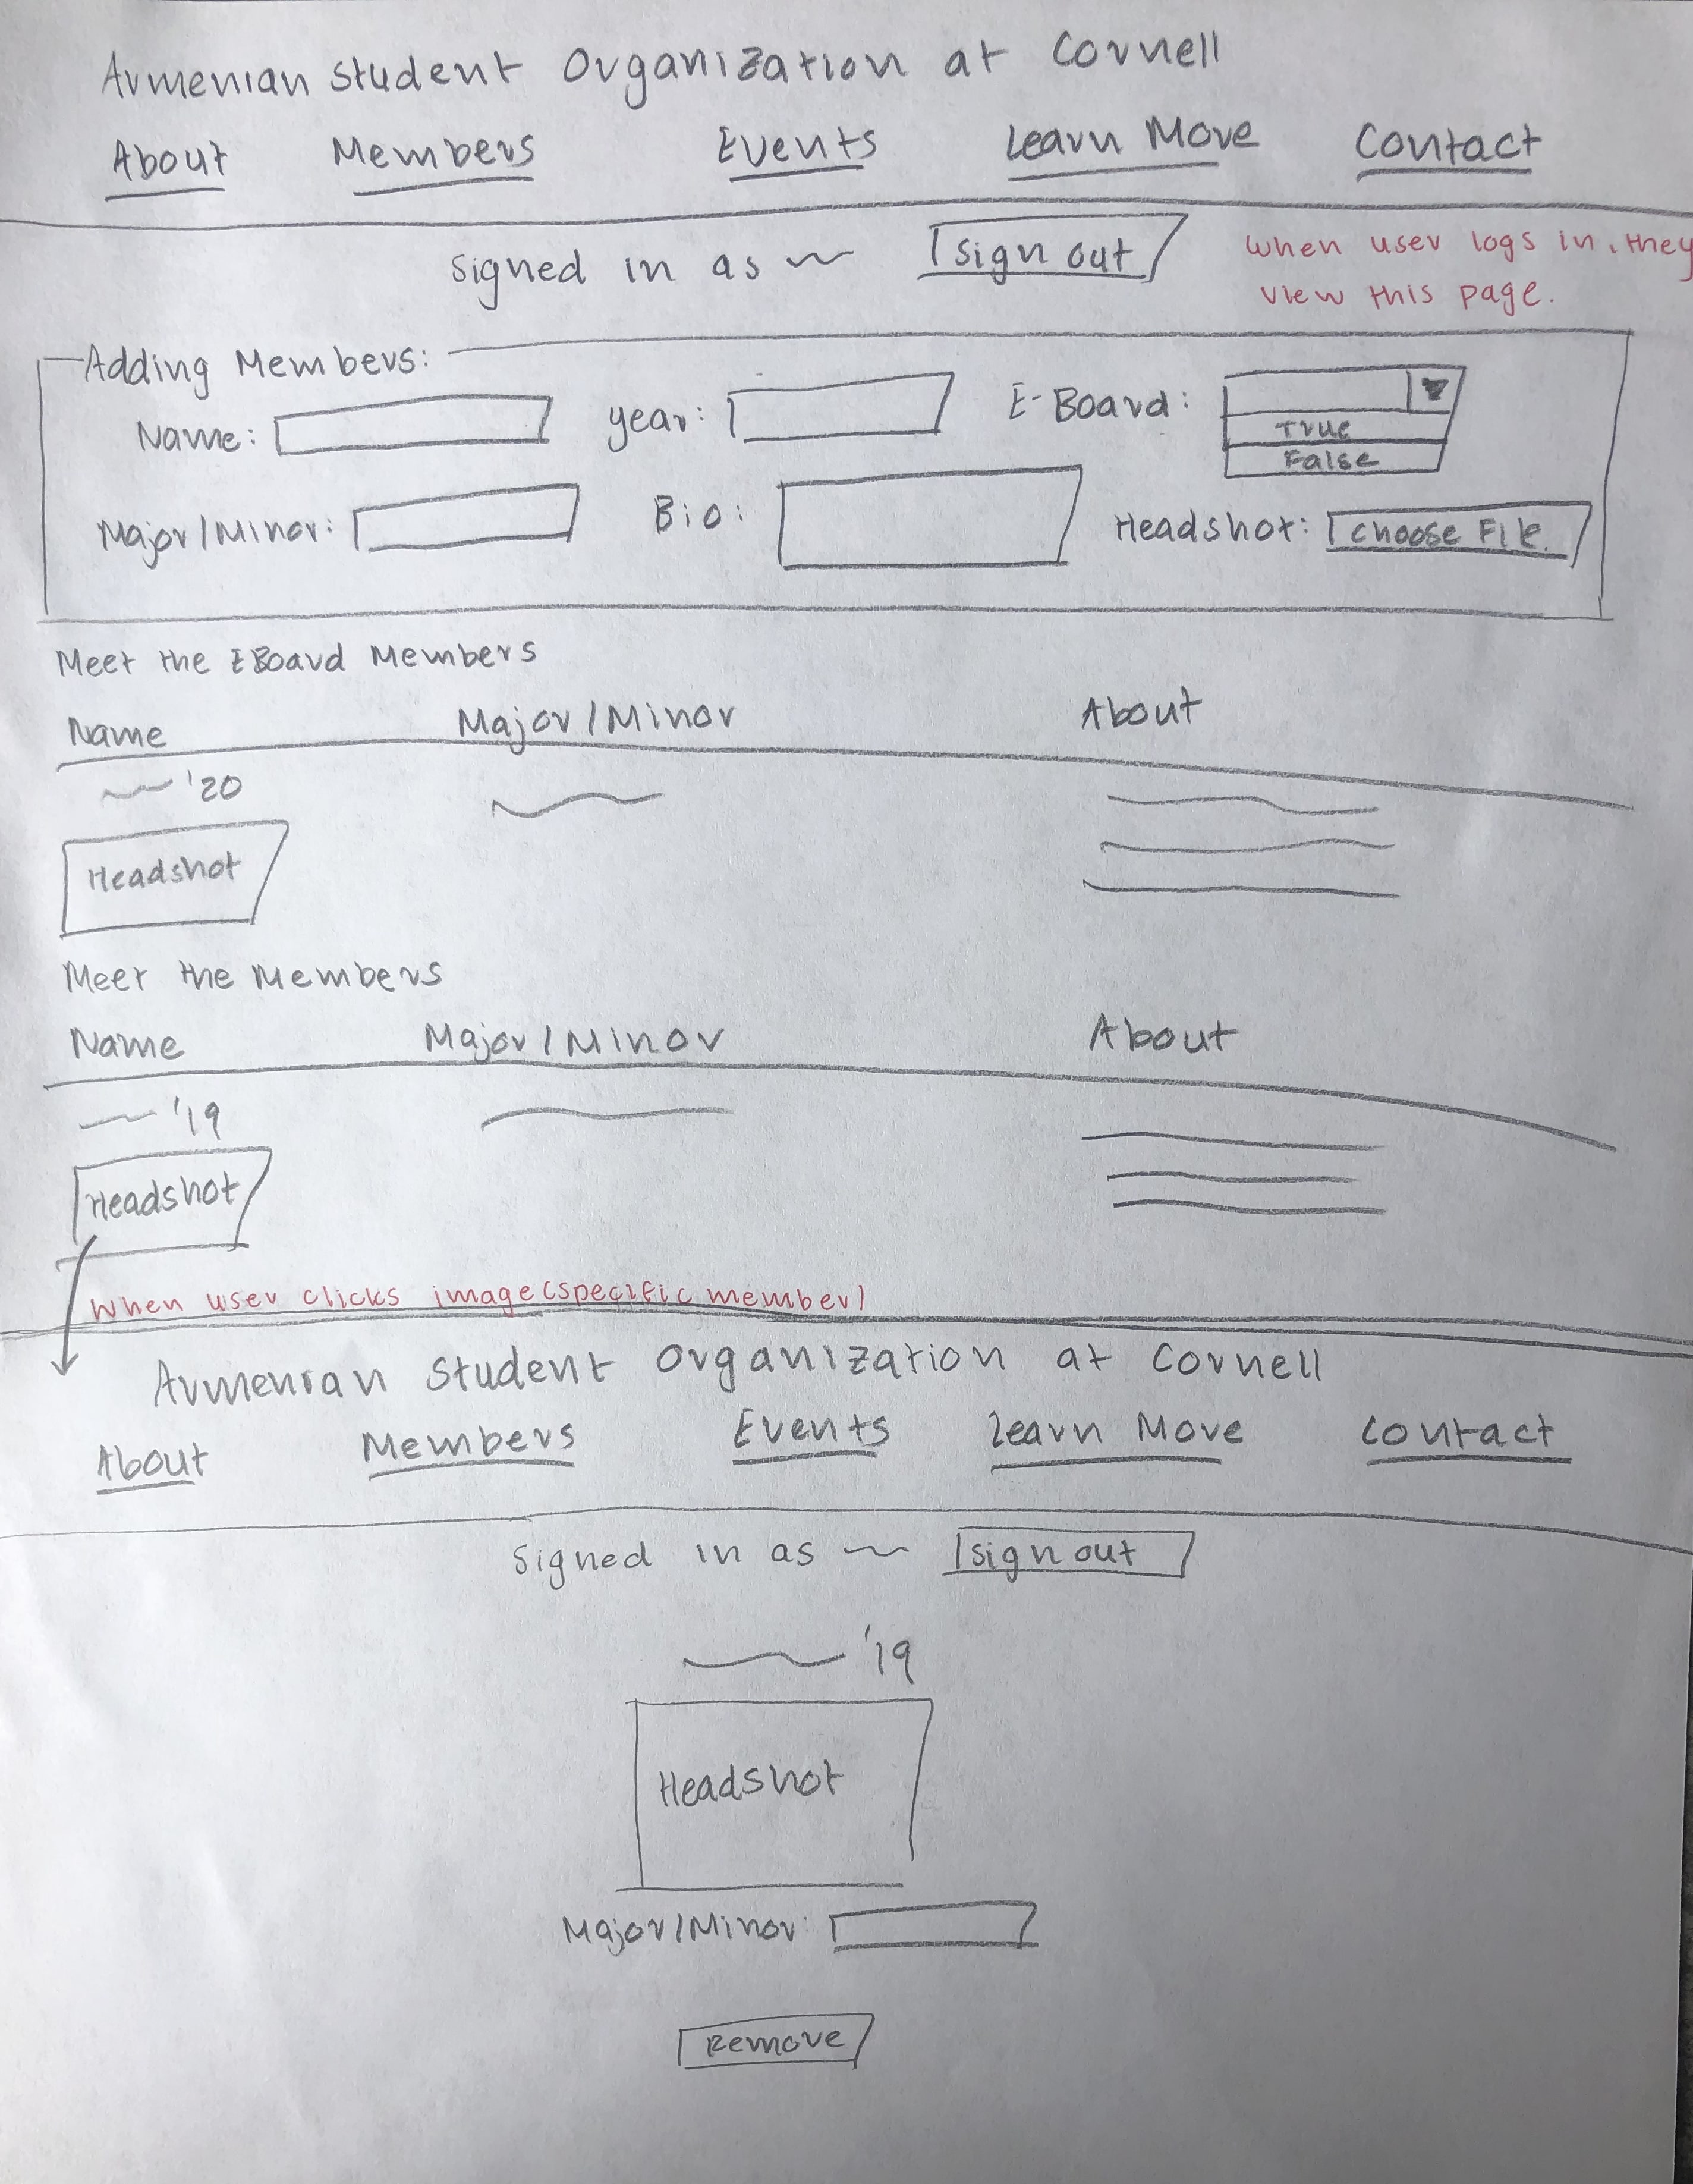 Armenian Student Organization at Cornell
About Members Events Learn More Contact
Signed in as sign out
when user logs in, they
view this page.
Adding Members:
Name: year: E-Board:
True
False
Major/Minor: Bio: Headshot: choose File
Meet the EBoard Members
Name Major/Minor About
'20
Headshot
Meet the Members
Name Major/Minor About
'19
Headshot
when user clicks image (specific member)
Armenian Student Organization at Cornell
About Members Events Learn More Contact
Signed in as sign out
'19
Headshot
Major/Minor:
Remove